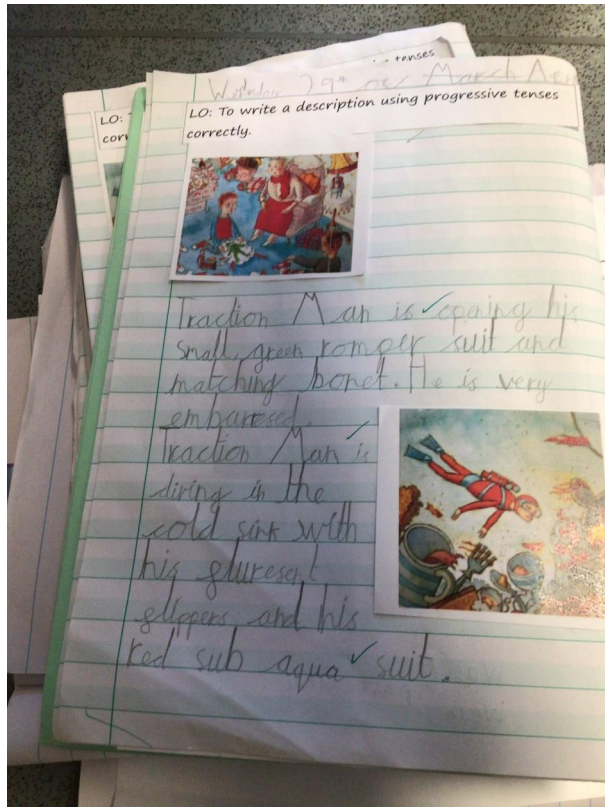 tenses
LO:
corr
LO: To write a description using progressive tenses
correctly.
Traction Man is opening his
small, green romper suit and
matching bonet. He is very
embaresed.
Traction Man is
diving in the
cold sink with
his fluresent
flippers and his
red sub aqua suit.